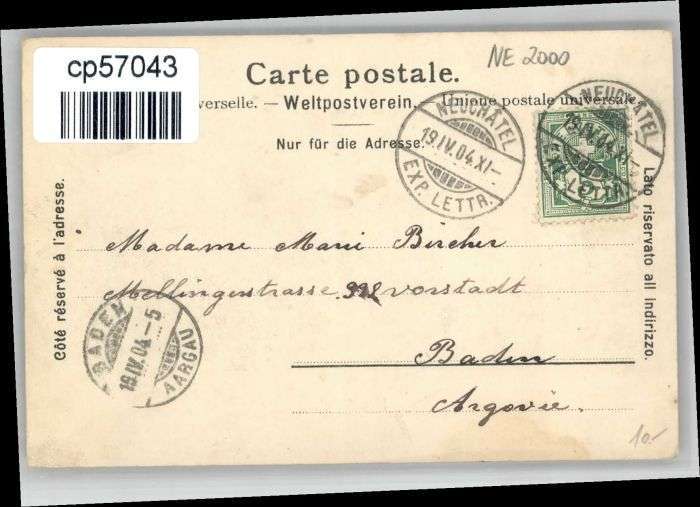 cp57043
NE 2000
Carte postale.
verselle. — Weltpostverein. Unione postale universale
Nur für die Adresse.
NEUCHÂTEL
19.IV.04.XI–
EXP. LETTR.
NEUCHÂTEL
19.IV.04.XI
EXP. LETTR.
Côté réservé à l'adresse.
Lato riservato all indirizzo.
Madame Marie Bircher
Mellingerstrasse vorstadt
Baden
Argovie.
BADEN
19.IV.04–5
AARGAU
10.-